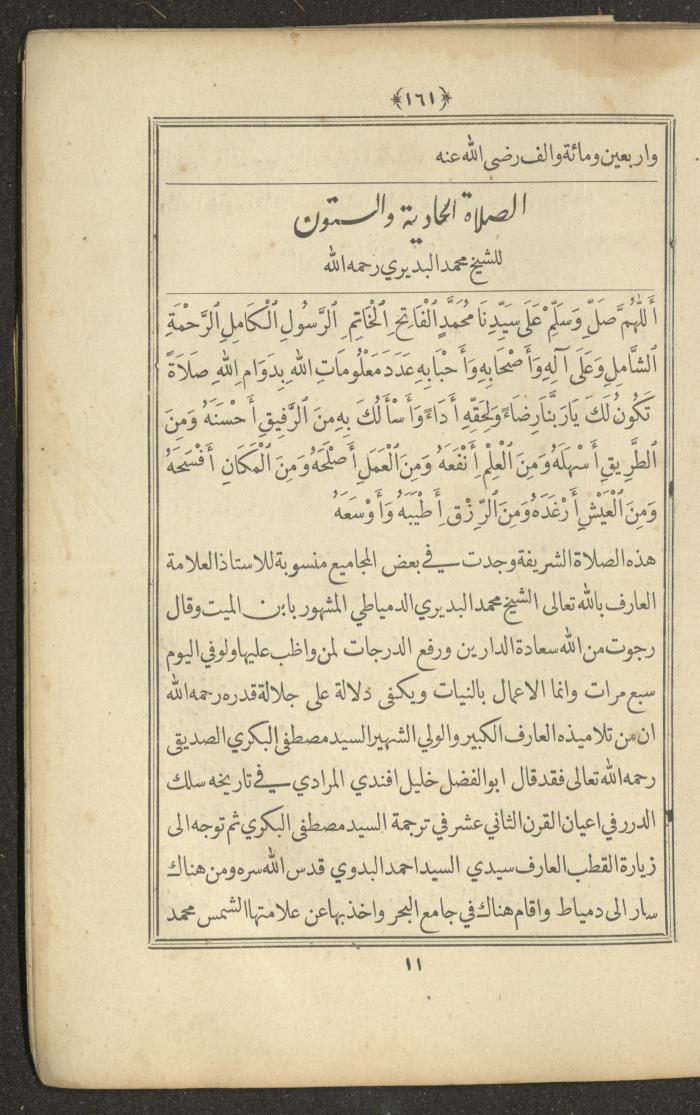 ﴿١٦١﴾
واربعين ومائة والف رضى الله عنه
الصلاة الحادية والستون
للشيخ محمد البديري رحمه الله
أَللّٰهُمَّ صَلِّ وَسَلِّمْ عَلَى سَيِّدِنَا مُحَمَّدٍ الْفَاتِحِ الْخَاتِمِ الرَّسُولِ الْكَامِلِ الرَّحْمَةِ
الشَّامِلِ وَعَلَى آلِهِ وَأَصْحَابِهِ وَأَحْبَابِهِ عَدَدَ مَعْلُومَاتِ اللهِ بِدَوَامِ اللهِ صَلَاةً
تَكُونُ لَكَ يَا رَبَّنَا رِضَاءً وَلِحَقِّهِ أَدَاءً وَأَسْأَلُكَ بِهِ مِنَ الرَّفِيقِ أَحْسَنَهُ وَمِنَ
الطَّرِيقِ أَسْهَلَهُ وَمِنَ الْعِلْمِ أَنْفَعَهُ وَمِنَ الْعَمَلِ أَصْلَحَهُ وَمِنَ الْمَكَانِ أَفْسَحَهُ
وَمِنَ الْعَيْشِ أَرْغَدَهُ وَمِنَ الرِّزْقِ أَطْيَبَهُ وَأَوْسَعَهُ
هذه الصلاة الشريفة وجدت في بعض المجاميع منسوبة للاستاذ العلامة
العارف بالله تعالى الشيخ محمد البديري الدمياطي المشهور بابن الميت وقال
رجوت من الله سعادة الدارين ورفع الدرجات لمن واظب عليها ولو في اليوم
سبع مرات وانما الاعمال بالنيات ويكفى دلالة على جلالة قدره رحمه الله
ان من تلاميذه العارف الكبير والولي الشهير السيد مصطفى البكري الصديقى
رحمه الله تعالى فقد قال ابو الفضل خليل افندي المرادي في تاريخه سلك
الدرر في اعيان القرن الثاني عشر في ترجمة السيد مصطفى البكري ثم توجه الى
زيارة القطب العارف سيدي السيد احمد البدوي قدس الله سره ومن هناك
سار الى دمياط واقام هناك في جامع البحر واخذ بها عن علامتها الشمس محمد
١١